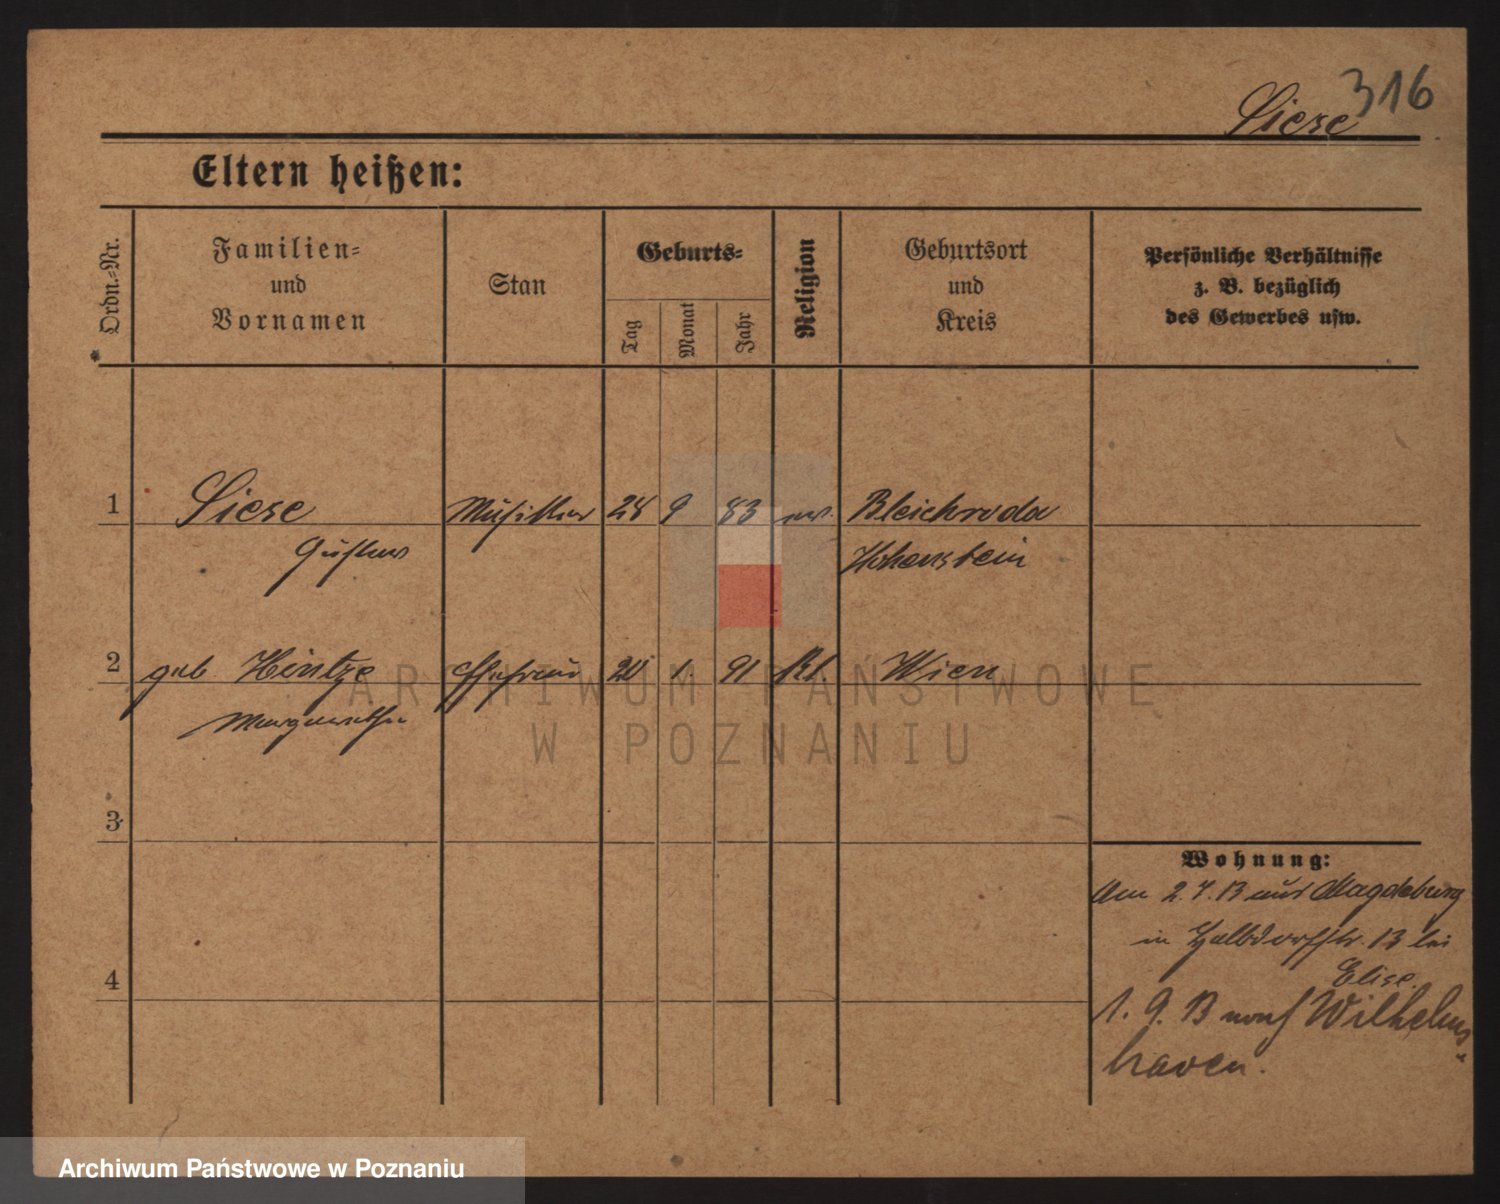 316
Siese
Eltern heißen:
Ordn.-Nr.
Familien-
und
Vornamen
Stan
Geburts-
Tag
Monat
Jahr
Religion
Geburtsort
und
Kreis
Persönliche Verhältnisse
z. B. bezüglich
des Gewerbes usw.
1 Siese Musiker 28 9 83 ev. Bleichroda
Gustav Hohenstein
2 geb Hintze Ehefrau 20 1. 91 kt. Wien
Margarethe
3
4
Wohnung:
Am 2.7.13 aus Magdeburg
in Halbdorfstr. 13 bei
Elise.
1. 9. 13 nach Wilhelms
haven.
ARCHIWUM PAŃSTWOWE
W POZNANIU
Archiwum Państwowe w Poznaniu